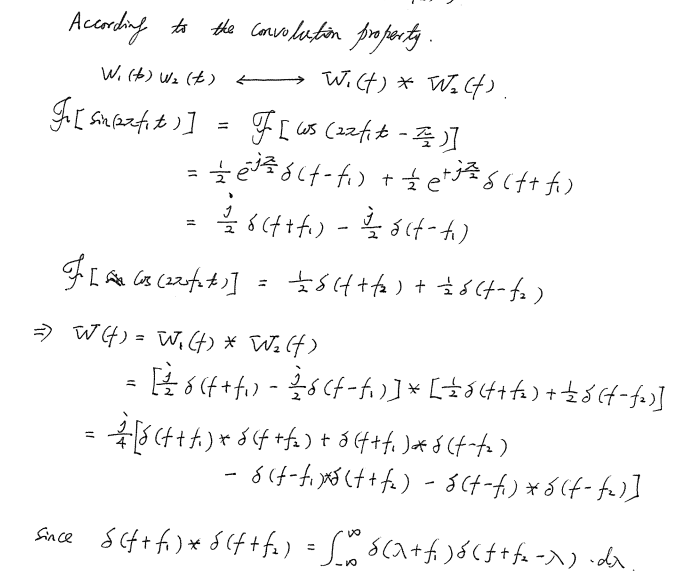 According to the convolution property.
W₁(t) W₂(t) ⟷ W₁(f) * W₂(f).
ℱ[sin(2πf₁t)] = ℱ[cos(2πf₁t - π/2)]
= 1/2 e^{-jπ/2} δ(f-f₁) + 1/2 e^{+jπ/2} δ(f+f₁)
= j/2 δ(f+f₁) - j/2 δ(f-f₁)
ℱ[cos(2πf₂t)] = 1/2 δ(f+f₂) + 1/2 δ(f-f₂)
⇒ W(f) = W₁(f) * W₂(f)
= [j/2 δ(f+f₁) - j/2 δ(f-f₁)] * [1/2 δ(f+f₂) + 1/2 δ(f-f₂)]
= j/4 [δ(f+f₁) * δ(f+f₂) + δ(f+f₁) * δ(f-f₂)
- δ(f-f₁) * δ(f+f₂) - δ(f-f₁) * δ(f-f₂)]
since δ(f+f₁) * δ(f+f₂) = ∫_{-∞}^{∞} δ(λ+f₁) δ(f+f₂-λ) · dλ